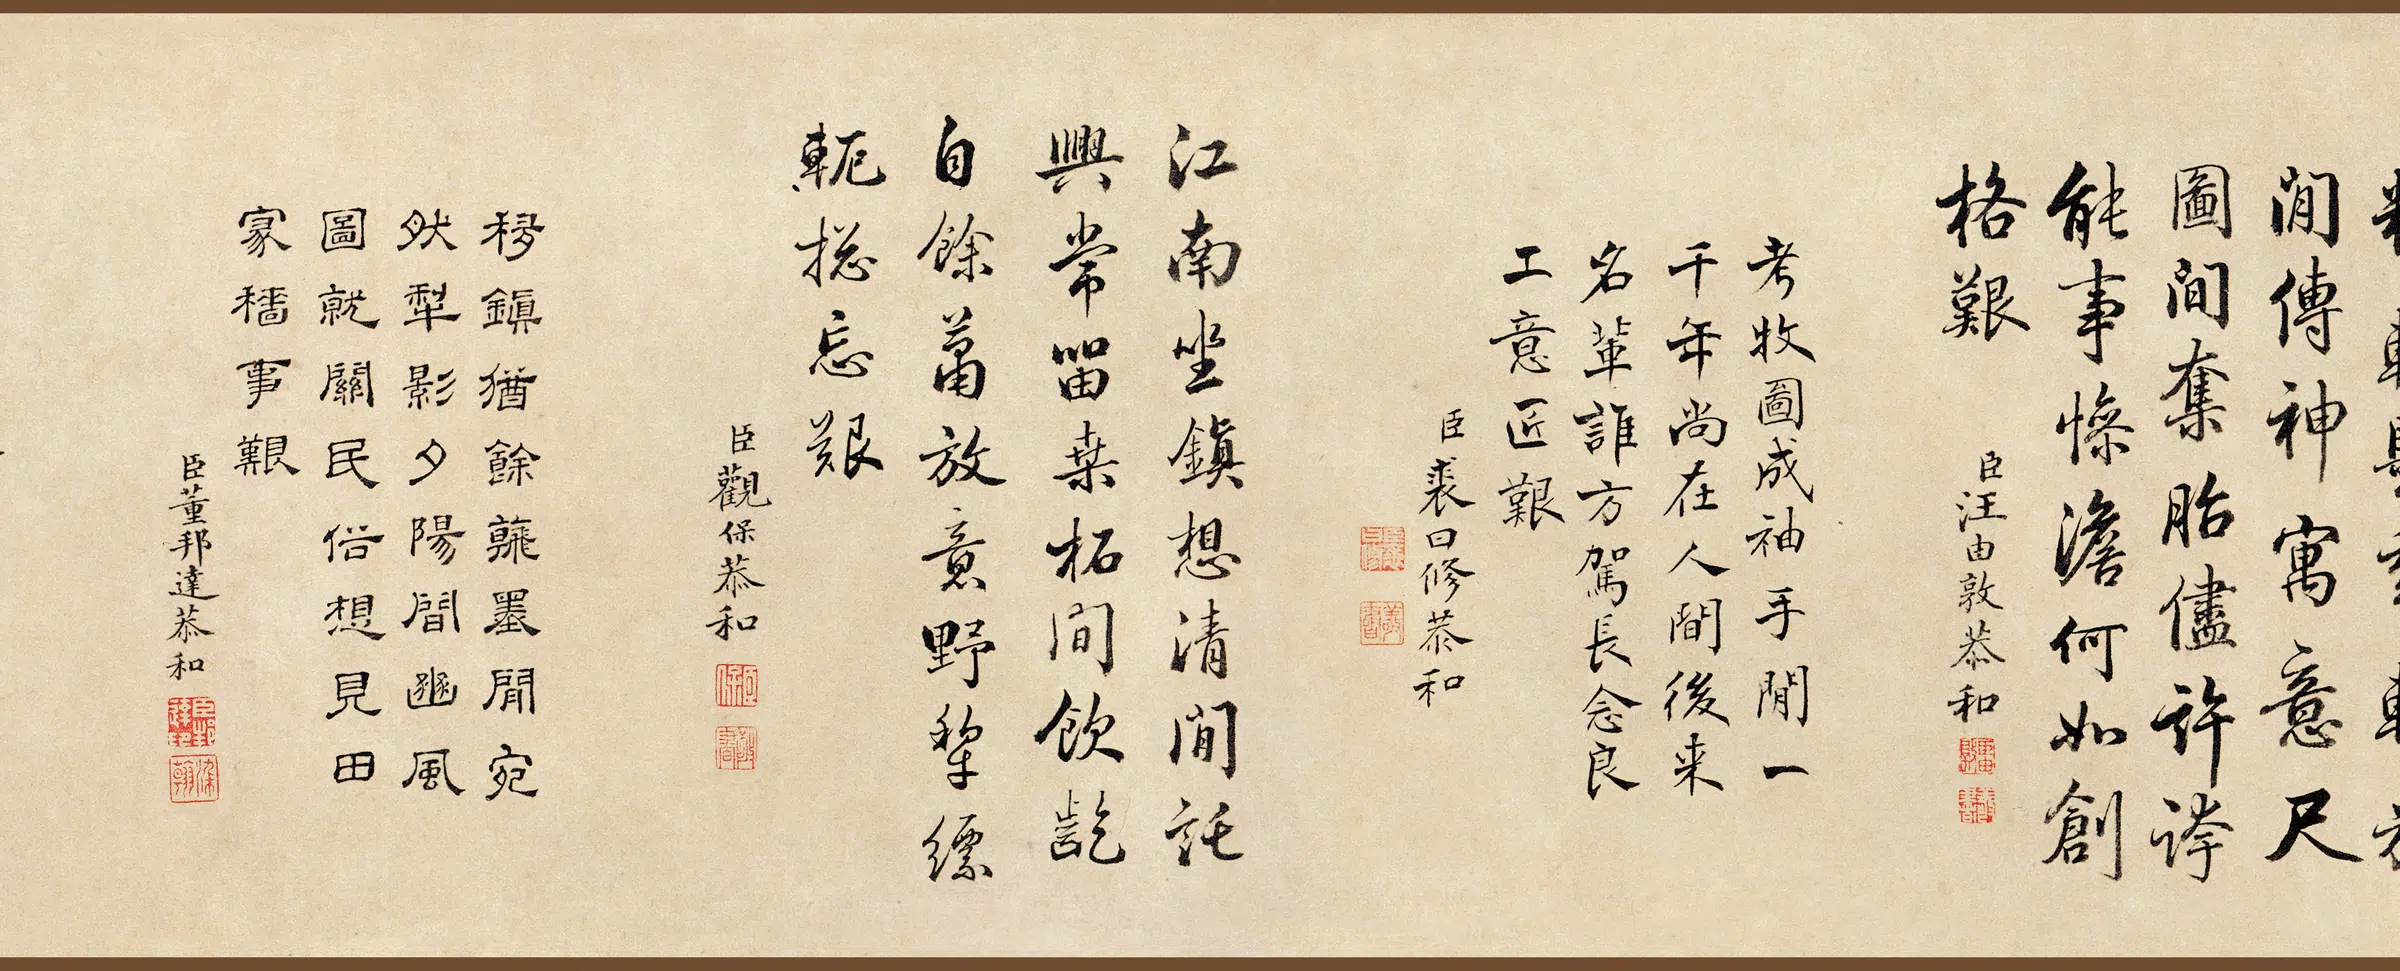 閒傳神寓意尺
圖間奪胎儘許誇
能事慘澹何如創
格艱
臣汪由敦恭和
考牧圖成袖手閒一
千年尚在人間後来
名輩誰方駕長念良
工意匠艱
臣裘曰修恭和
江南坐鎮想清閒託
興常留桒柘間飲齕
自餘萬放意野犂縹
軛揔忘艱
臣觀保恭和
移鎮猶餘蓺墨閒宛
然犁影夕陽間豳風
圖就關民俗想見田
家穡事艱
臣董邦達恭和